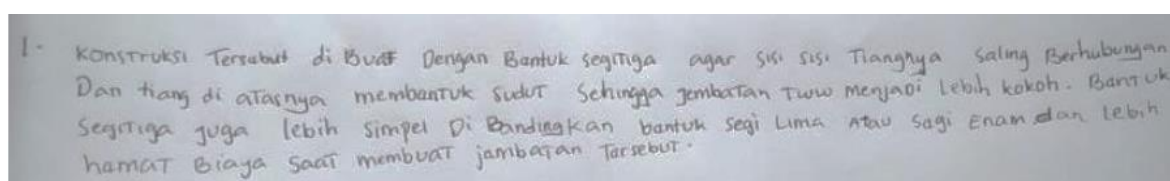 1. Konstruksi Tersebut di Buat Dengan Bantuk segitiga agar sisi sisi Tiangnya Saling Berhubungan
Dan tiang di atasnya membantuk sudut Sehingga jembatan menjadi Lebih kokoh. Bantuk
Segitiga juga lebih simpel Di Bandingkan bantuk segi Lima Atau Sagi Enam dan lebih
hamat Biaya saat membuat jambatan Tarsebut.